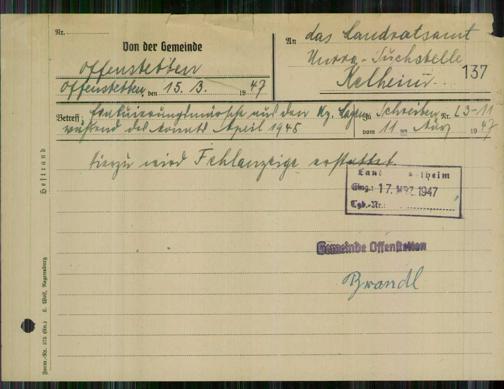 Nr.
Von der Gemeinde
Offenstetten
Offenstetten, den 15. 3. 1947
An das Landratsamt
Unrra-Suchstelle
Kelheim 137
Betreff: Evakuierungsmärsche aus den Kz. Lagern Zu Schreiben Nr. L 3-11
während des Monats April 1945 vom 11 im März 1947
hierzu wird Fehlanzeige erstattet.
Land heim
Eing.: 17. MRZ. 1947
Tgb.-Nr.:
Gemeinde Offenstetten
Brandl
Heftrand
Form.-Nr. 572 (Gn.) E. Wolf, Regensburg